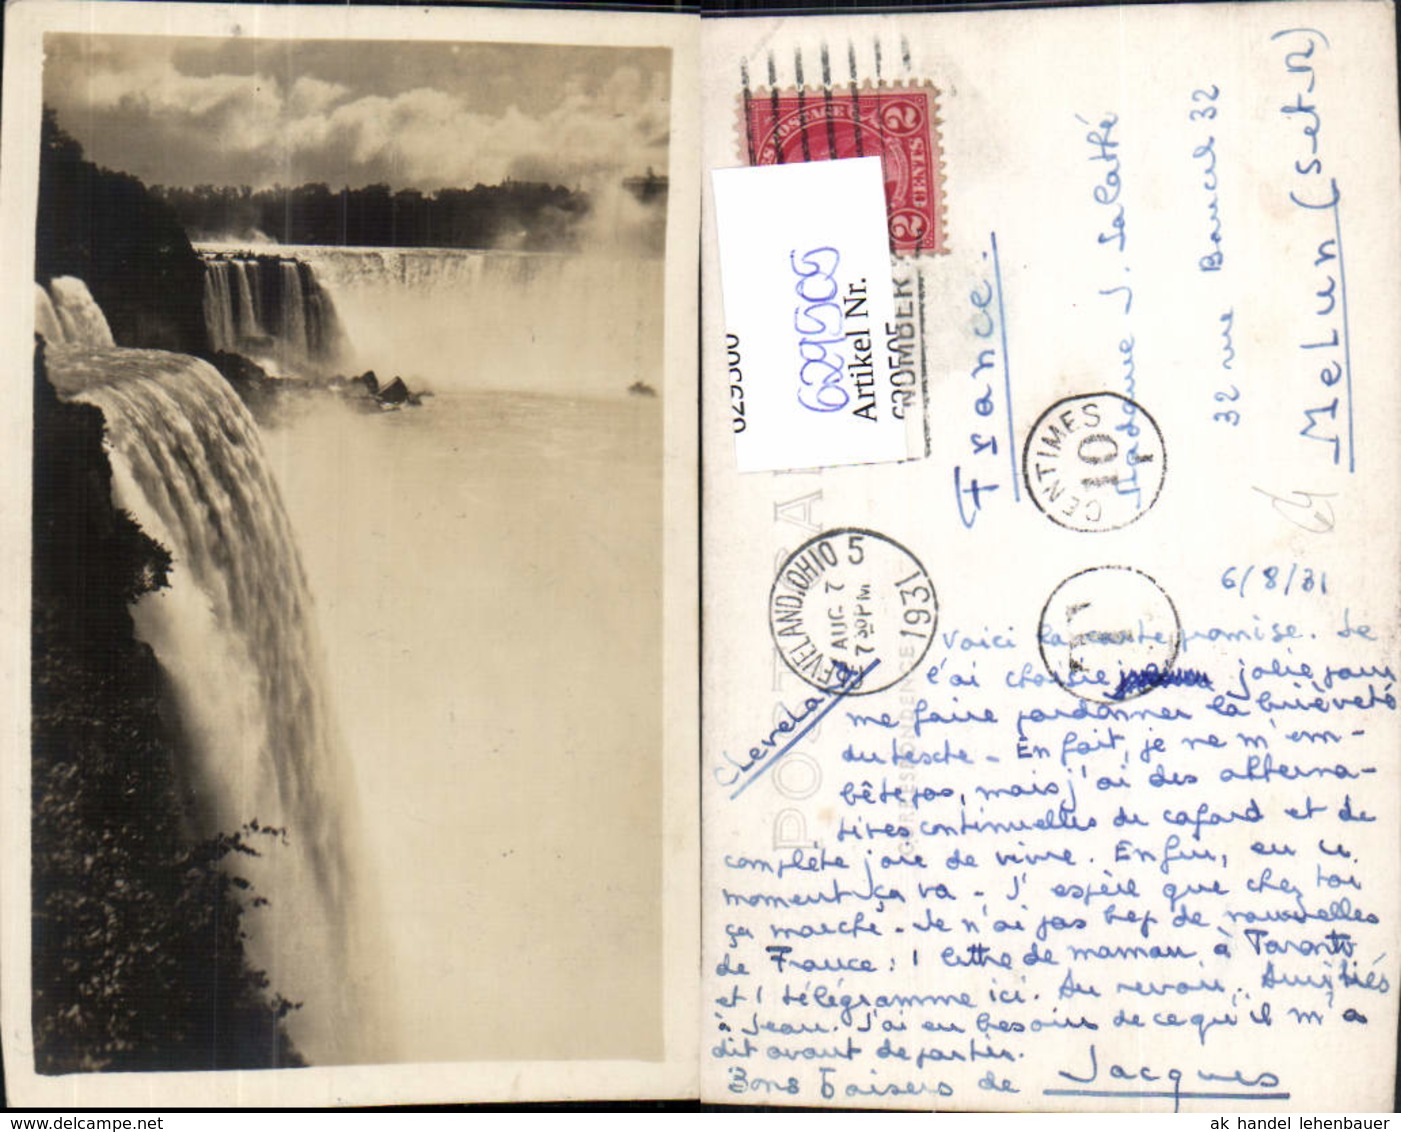 2
2
CENTS
629505
Artikel Nr.
629505
629506
NUMBER
POST
CORRESPONDENCE
CLEVELAND, OHIO 5
AUG 7
7 30 PM
1931
CENTIMES
10
T
France.
Madame J. Salathé
32 rue Bancel 32
MeLun (S et M)
6/8/31
Voici la carte promise. Je
l'ai choisie jolie pour
me faire pardonner la brièveté
du texte - En fait, je ne m'em-
bête pas, mais j'ai des alterna-
tives continuelles de cafard et de
complète joie de vivre. Enfin, en ce
moment ça va - J'espère que chez toi
ça marche. Je n'ai pas trop de nouvelles
de France: 1 lettre de maman à Toronto
et 1 télégramme ici. Au revoir. Amitiés
à Jean. J'ai eu besoin de ce qu'il m'a
dit avant de partir.
Bons baisers de Jacques
Cleveland
ak handel lehenbauer